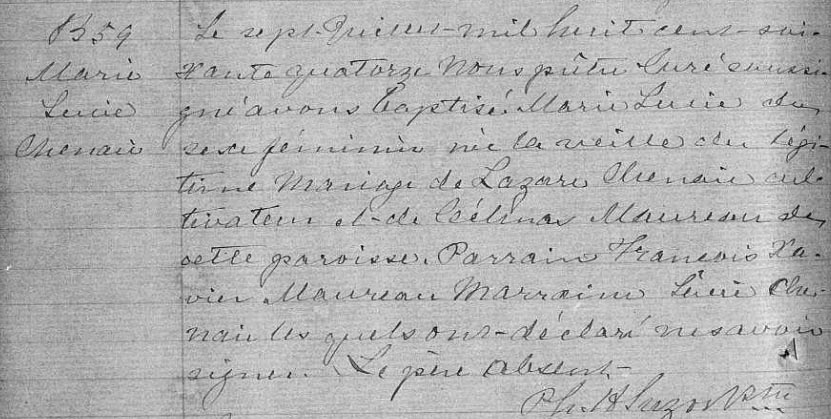 B59
Marie
Lucie
Chenaie
Le sept Juillet mil huit cent soi-
xante quatorze Nous prêtre Curé soussi-
gné avons baptisé Marie Lucie du
sexe féminin née la veille du légi-
time Mariage de Lazare Chenaie cul-
tivateur et de Célina Maureau de
cette paroisse. Parrain François Xa-
vier Maureau Marraine Lucie Che-
naie les quels ont déclaré ne savoir
signer. Le père absent
Ph. H Suzor Ptre